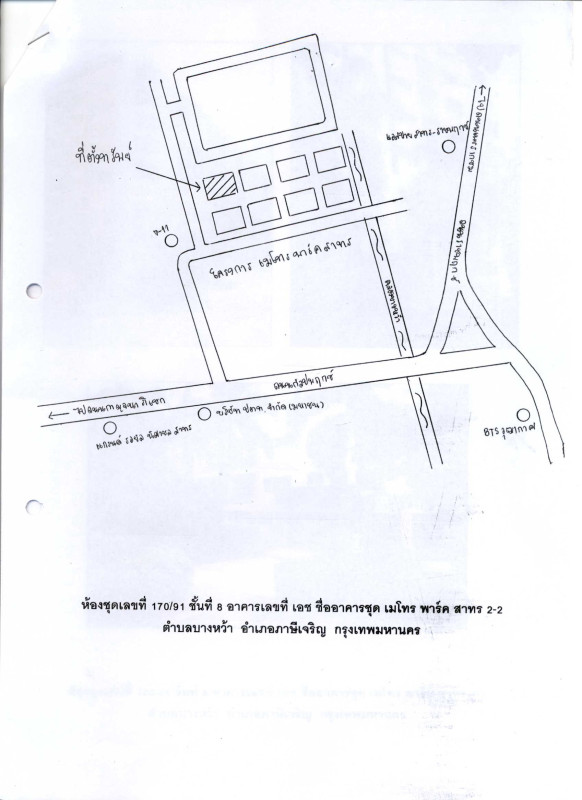 ที่ตั้งทรัพย์
แม็กซ์แวลู สาทร-ราชพฤกษ์
ถนนราชพฤกษ์
7-11
โครงการ เมโทร พาร์ค สาทร
คลองบางหว้า
ถนนกัลปพฤกษ์
ไปถนนกาญจนาภิเษก
บริษัท ปตท. จำกัด (มหาชน)
แกรนด์ รอยัล พิศาชล สาทร
BTS วุฒากาศ
ห้องชุดเลขที่ 170/91 ชั้นที่ 8 อาคารเลขที่ เอช ชื่ออาคารชุด เมโทร พาร์ค สาทร 2-2
ตำบลบางหว้า อำเภอภาษีเจริญ กรุงเทพมหานคร